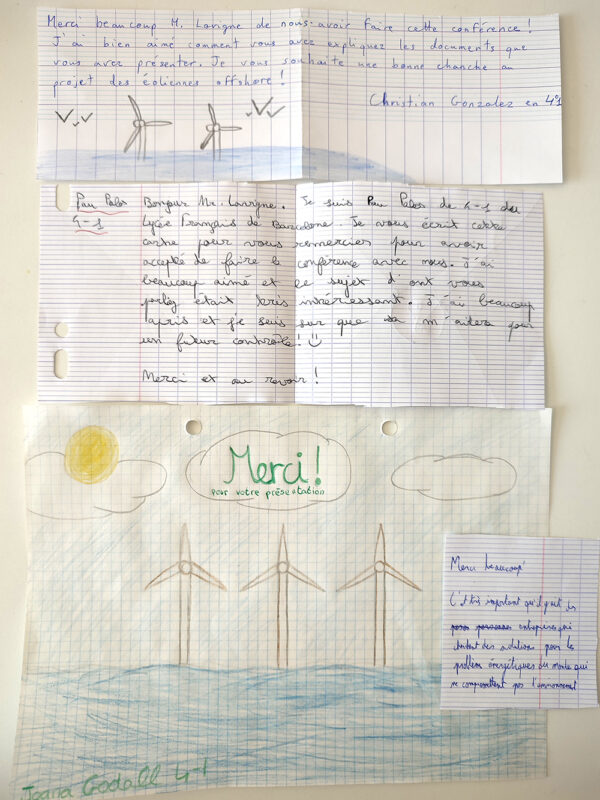 Merci beaucoup M. Lavigne de nous avoir faire cette conférence !
J'ai bien aimé comment vous avez expliquez les documents que
vous avez présenter. Je vous souhaite une bonne chanche au
projet des éoliennes offshore !
Christian Gonzalez en 4°1
Pau Palos
4-1
Bonjour Mr. Lavigne. Je suis Pau Palos de 4-1 du
Lycée Français de Barcelone. Je vous écrit cette
carte pour vous remercier pour avoir
accepté de faire la conférence avec nous. J'ai
beaucoup aimé et le sujet d'ont vous
parlez était très intéressant. J'ai beaucoup
apris et je suis sur que sa m'aidera pour
un futur contrôle! :)
Merci et au revoir !
Merci!
pour votre présentation
Merci beaucoup
C'est très important qu'il y ait des
entreprises qui
des solutions pour les
problèm énergétiques du monde qui
ne compromettent pas l'environnement
Joana Godall 4-1